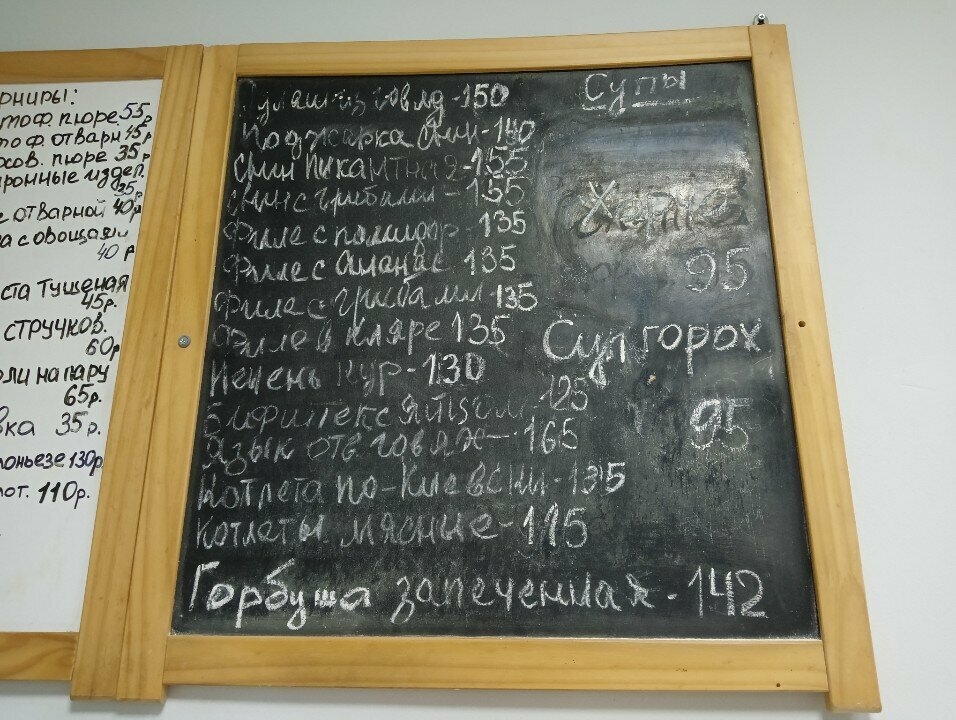 рниры:
тоф. пюре 55р
тоф. отварн 45р
охов. пюре 35р
ронные издел.
35р.
е отварной 40р
а с овощами
40 р
ста тушеная
45р.
стручков.
60р
ли на пару
65р.
вка 35р.
лоньезе 130р.
лот. 110р.
Гулаш из говяд - 150
Поджарка свин - 140
Свин пикантная - 155
Свин с грибами - 155
Филе с помидор - 135
Филе с Ананас 135
Филе с грибами - 135
Филе в кляре 135
Печень кур - 130
Бифштекс с яйцом 125
Язык отв. говяж - 165
Котлета по-Киевски - 135
Котлеты мясные - 115
Горбуша запеченная - 142
Супы
95
Суп горох
95